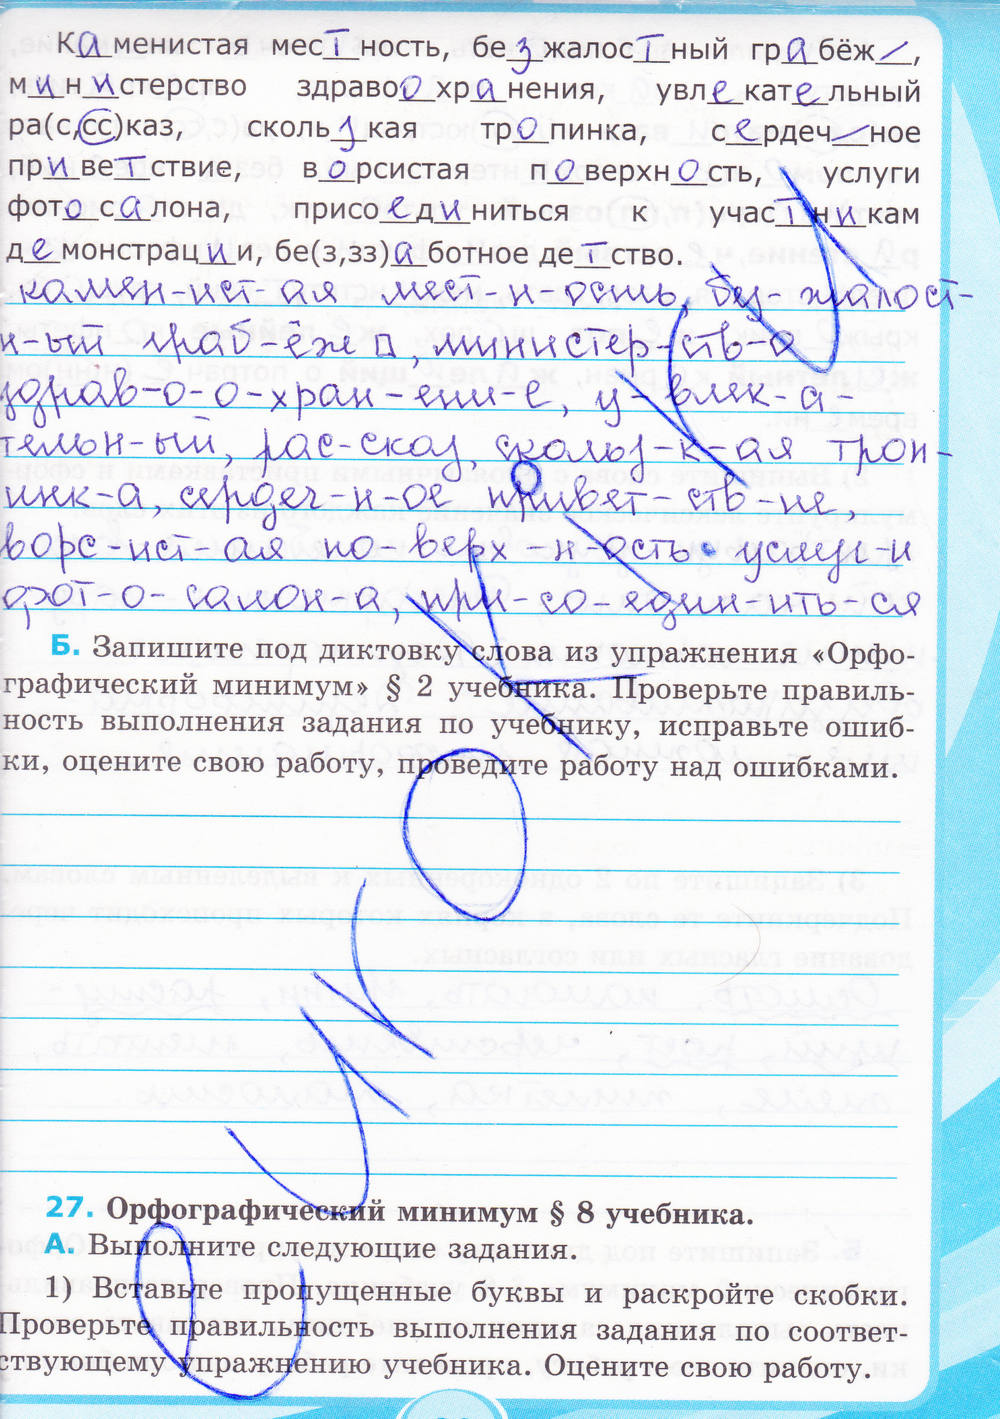 Каменистая местность, безжалостный грабёж,
министерство здравоохранения, увлекательный
ра(с,сс)каз, скользкая тропинка, сердечное
приветствие, ворсистая поверхность, услуги
фотосалона, присоединиться к участникам
демонстрации, бе(з,зз)аботное детство.
камен-ист-ая мест-н-ость, без-жалост-
н-ый граб-ёж, министер-ств-о
здрав-о-о-хран-ени-е, у-влек-а-
тельн-ый, рас-сказ, скольз-к-ая троп-
инк-а, сердеч-н-ое привет-ств-ие,
ворс-ист-ая по-верх-н-ость услуг-и
фот-о-салон-а, при-со-един-ить-ся
Б. Запишите под диктовку слова из упражнения «Орфо-
графический минимум» § 2 учебника. Проверьте правиль-
ность выполнения задания по учебнику, исправьте ошиб-
ки, оцените свою работу, проведите работу над ошибками.
27. Орфографический минимум § 8 учебника.
А. Выполните следующие задания.
1) Вставьте пропущенные буквы и раскройте скобки.
Проверьте правильность выполнения задания по соответ-
ствующему упражнению учебника. Оцените свою работу.